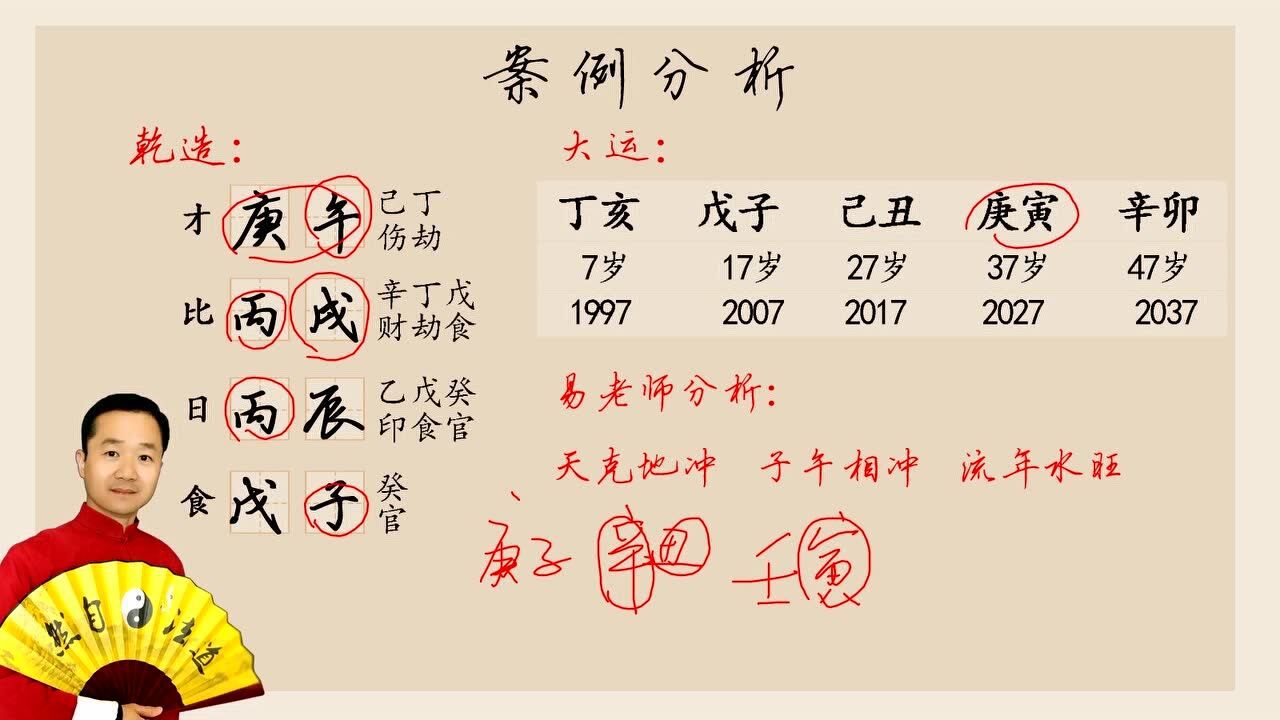 案例分析
乾造：
才 庚 午 己丁
伤劫
比 丙 戌 辛丁戊
财劫食
日 丙 辰 乙戊癸
印食官
食 戊 子 癸
官
大运：
丁亥 戊子 己丑 庚寅 辛卯
7岁 17岁 27岁 37岁 47岁
1997 2007 2017 2027 2037
易老师分析：
天克地冲 子午相冲 流年水旺
庚子 辛丑 壬寅
然自法道